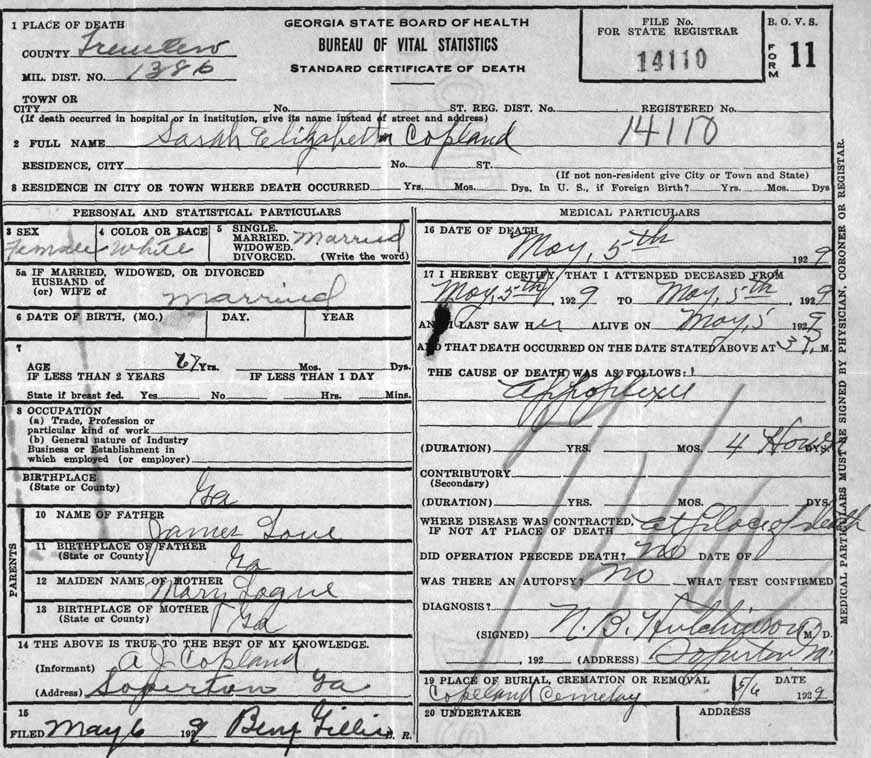 GEORGIA STATE BOARD OF HEALTH
BUREAU OF VITAL STATISTICS
STANDARD CERTIFICATE OF DEATH
FILE No.
FOR STATE REGISTRAR
14110
B. O. V. S.
FORM 11
1 PLACE OF DEATH
COUNTY Treutlen
MIL. DIST. NO. 1386
TOWN OR
CITY No. ST. REG. DIST. No. REGISTERED No.
(If death occurred in hospital or in institution, give its name instead of street and address)
14110
2 FULL NAME Sarah Elizabeth Copland
RESIDENCE, CITY No. ST.
(If not non-resident give City or Town and State)
3 RESIDENCE IN CITY OR TOWN WHERE DEATH OCCURRED Yrs. Mos. Dys. In U. S., if Foreign Birth? Yrs. Mos. Dys
PERSONAL AND STATISTICAL PARTICULARS
3 SEX
Female
4 COLOR OR RACE
White
5 SINGLE.
MARRIED.
WIDOWED.
DIVORCED.
Married
(Write the word)
5a IF MARRIED, WIDOWED, OR DIVORCED
HUSBAND of
(or) WIFE of Married
6 DATE OF BIRTH, (MO.) DAY. YEAR
7
AGE 67 Yrs. Mos. Dys.
IF LESS THAN 2 YEARS IF LESS THAN 1 DAY
State if breast fed. Yes No Hrs. Mins.
8 OCCUPATION
(a) Trade, Profession or
particular kind of work
(b) General nature of Industry
Business or Establishment in
which employed (or employer)
BIRTHPLACE
(State or County) Ga
PARENTS
10 NAME OF FATHER
James Love
11 BIRTHPLACE OF FATHER
(State or County) Ga
12 MAIDEN NAME OF MOTHER
Mary Logue
13 BIRTHPLACE OF MOTHER
(State or County) Ga
14 THE ABOVE IS TRUE TO THE BEST OF MY KNOWLEDGE.
(Informant) A J Copland
(Address) Soperton Ga
15
FILED May 6 1929 Benj Gillis L. R.
MEDICAL PARTICULARS
16 DATE OF DEATH
May, 5th 1929
17 I HEREBY CERTIFY, THAT I ATTENDED DECEASED FROM
May, 5th, 1929 TO May, 5th, 1929
AND I LAST SAW Her ALIVE ON May, 5 1929
AND THAT DEATH OCCURRED ON THE DATE STATED ABOVE AT 3 P. M.
THE CAUSE OF DEATH WAS AS FOLLOWS:
Appoplexy
(DURATION) YRS. MOS. 4 Hours
CONTRIBUTORY
(Secondary)
(DURATION) YRS. MOS. DYS.
WHERE DISEASE WAS CONTRACTED,
IF NOT AT PLACE OF DEATH at place of death
DID OPERATION PRECEDE DEATH? No DATE OF
WAS THERE AN AUTOPSY? No WHAT TEST CONFIRMED
DIAGNOSIS?
(SIGNED) N. B. Hutchinson M. D.
, 192 (ADDRESS) Soperton
19 PLACE OF BURIAL, CREMATION OR REMOVAL DATE
Copeland Cemetery 5/6 1929
20 UNDERTAKER ADDRESS
MEDICAL PARTICULARS MUST BE SIGNED BY PHYSICIAN, CORONER OR REGISTAR.